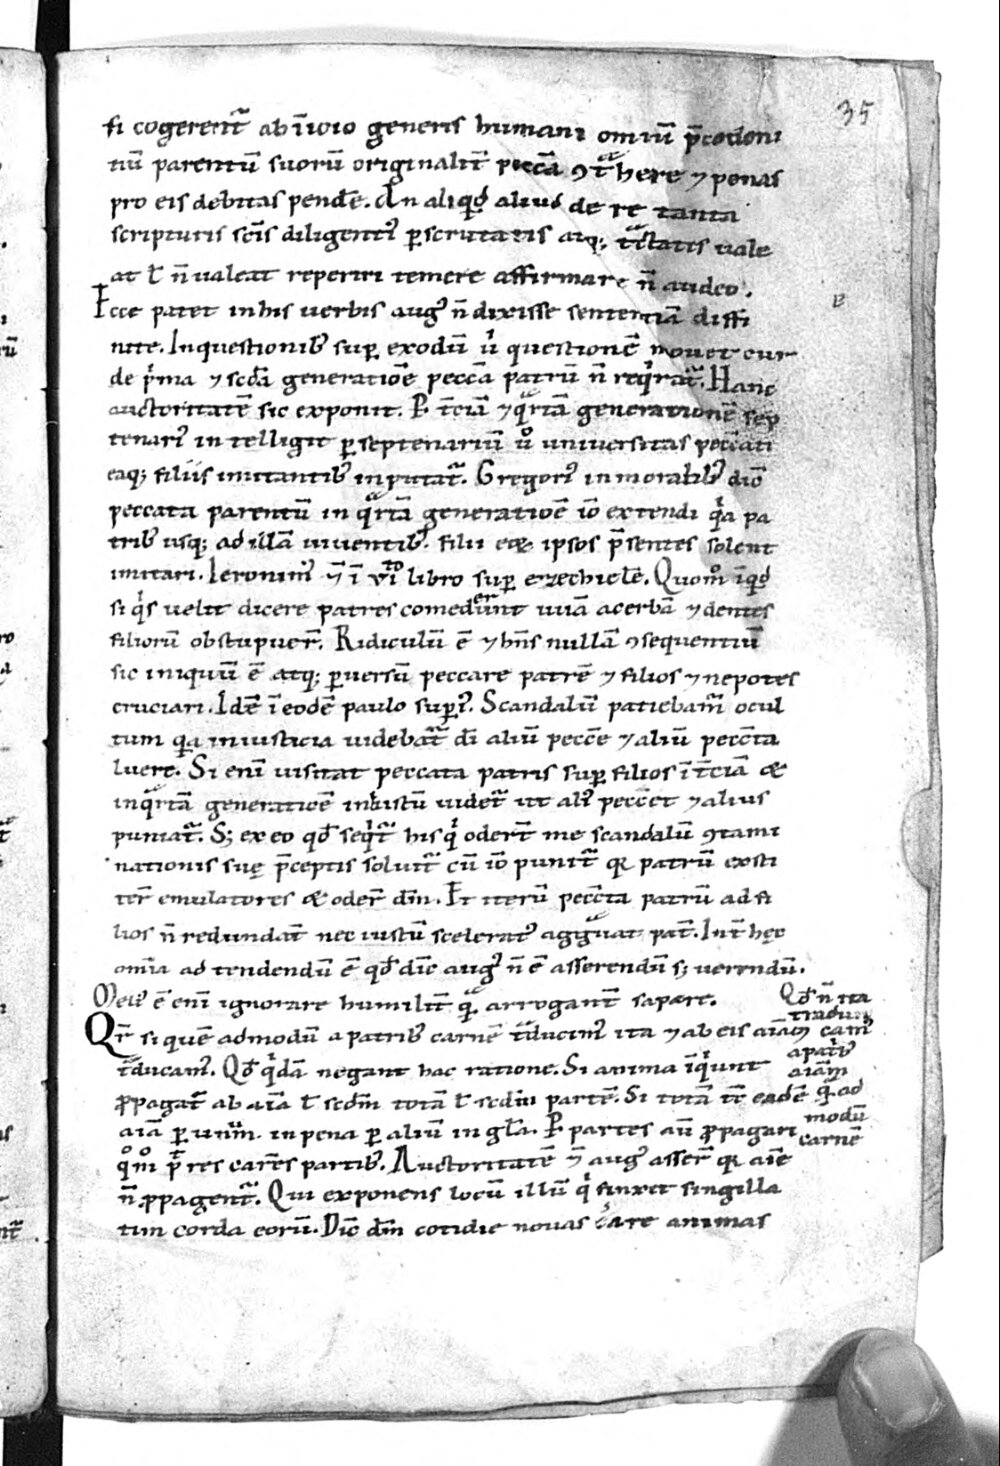 35
si cogerent̄ ab īicio generis humani omiū p̄cedenti
tiū parentū suorū originalit̄ peccā ꝯt̄here ⁊ penas
pro eis debitas pendēe. An aliqᵈ aliud de re tanta
scripturis scīs diligentiꝰ ꝑscrutatis atq; tᵃctatis vale
at ł n̄ valeat reperiri temere affirmare n̄ audeo.
Ecce patet in his verbis augꝰ n̄ dixisse sententiā diffi
nite. In questionibꝰ suꝑ exodū v̊ questionē mouet cur
de pⁱma ⁊ scdā generatiōe peccā patrū n̄ reqⁱrat̄. Hanc
auctoritatē sic exponit. P t̄ciā ⁊ qᵃrtā generationē sep
tenariꝰ intelligit ꝑ septenariū v̊ uniuersitas peccāti
eaq; filiis imitantibꝰ inputat̄. Gregoriꝰ in moralibꝰ dic̄
peccata parentū in qᵃrtā generatiōe iō extendi qⁱa pa
tribꝰ usq; ad illā viuentibꝰ. filii eꝫ ipsos p̄sentes solent
imitari. Ieronimꝰ ⁊̄ ī viᵗᵒ libro suꝑ ezechielē. Quom̊ īqᵈ
si qⁱs uelit dicere patres comederunt uuā acerbā ⁊ dentes
filiorū obstupuer̄. Ridiculū ē ⁊ hn̄s nullā ꝯsequentiū
sic iniquū ē atq; ꝑuersū peccare patrē ⁊ filios ⁊ nepotes
cruciari. Idē ī eodē paulo suꝑiꝰ. Scandalū patiebam̄ ocul
tum qᵃa iniusticia uidebat̄ di aliū peccēe ⁊ aliū pecc̄ta
luere. Si enī uisitat peccata patris suꝑ filios ī t̄ciā &
in qᵃrtā generatiōe iniustū uidet̄ ut aliꝰ pecc̄et ⁊ alius
puniat̄. S; ex eo qd̄ seqⁱt̄ his qⁱ oder̄t me scandalū ꝯtami
nationis suę p̄ceptis soluit̄ cū iō punit̄ qꝛ patrū exsti
ter̄ emulatores & oder̄ dm̄. Et iterū pecc̄ta patrū ad fi
lios n̄ redundāt nec iustū sceleratꝰ agigᵃuat pat̄. Int̄ hęc
omīa ad tendendū ē qd̄ dic̄ augꝰ n̄ ē asserendū s; uerendū.
Meliꝰ ē enī ignorare humilit̄ qᵃ arrogant̄ sapere.
Qr̄ si quē admodū a patribꝰ carnē tᵃducimꝰ ita ⁊ ab eis aīaꝫ
tᵃducamꝰ. Qd̄ qⁱdā negant hac ratione. Si anima īqⁱunt
ꝓpagat̄ ab aīa ł scdm̄ totā ł scdm̄ partē. Si totā t̄c eadē
aīa ꝑ unūm. in pena ꝑ aliū in głā. P partes aū ꝓpagari
qᵒm̊ p̄t res carēs partibꝰ. Auctoritatē ⁊̄ augꝰ asser̄ qꝛ aīe
n̄ ꝓpagent̄. Qui exponens locū illū qⁱ finxit singilla
tim corda eorū. Dic̄ dm̄ cotidie nouas c̄are animas
Qd̄ n̄ ita
tradui
cam̄
a patⁱbꝰ
aīam
qᵃ ad
modū
carnē